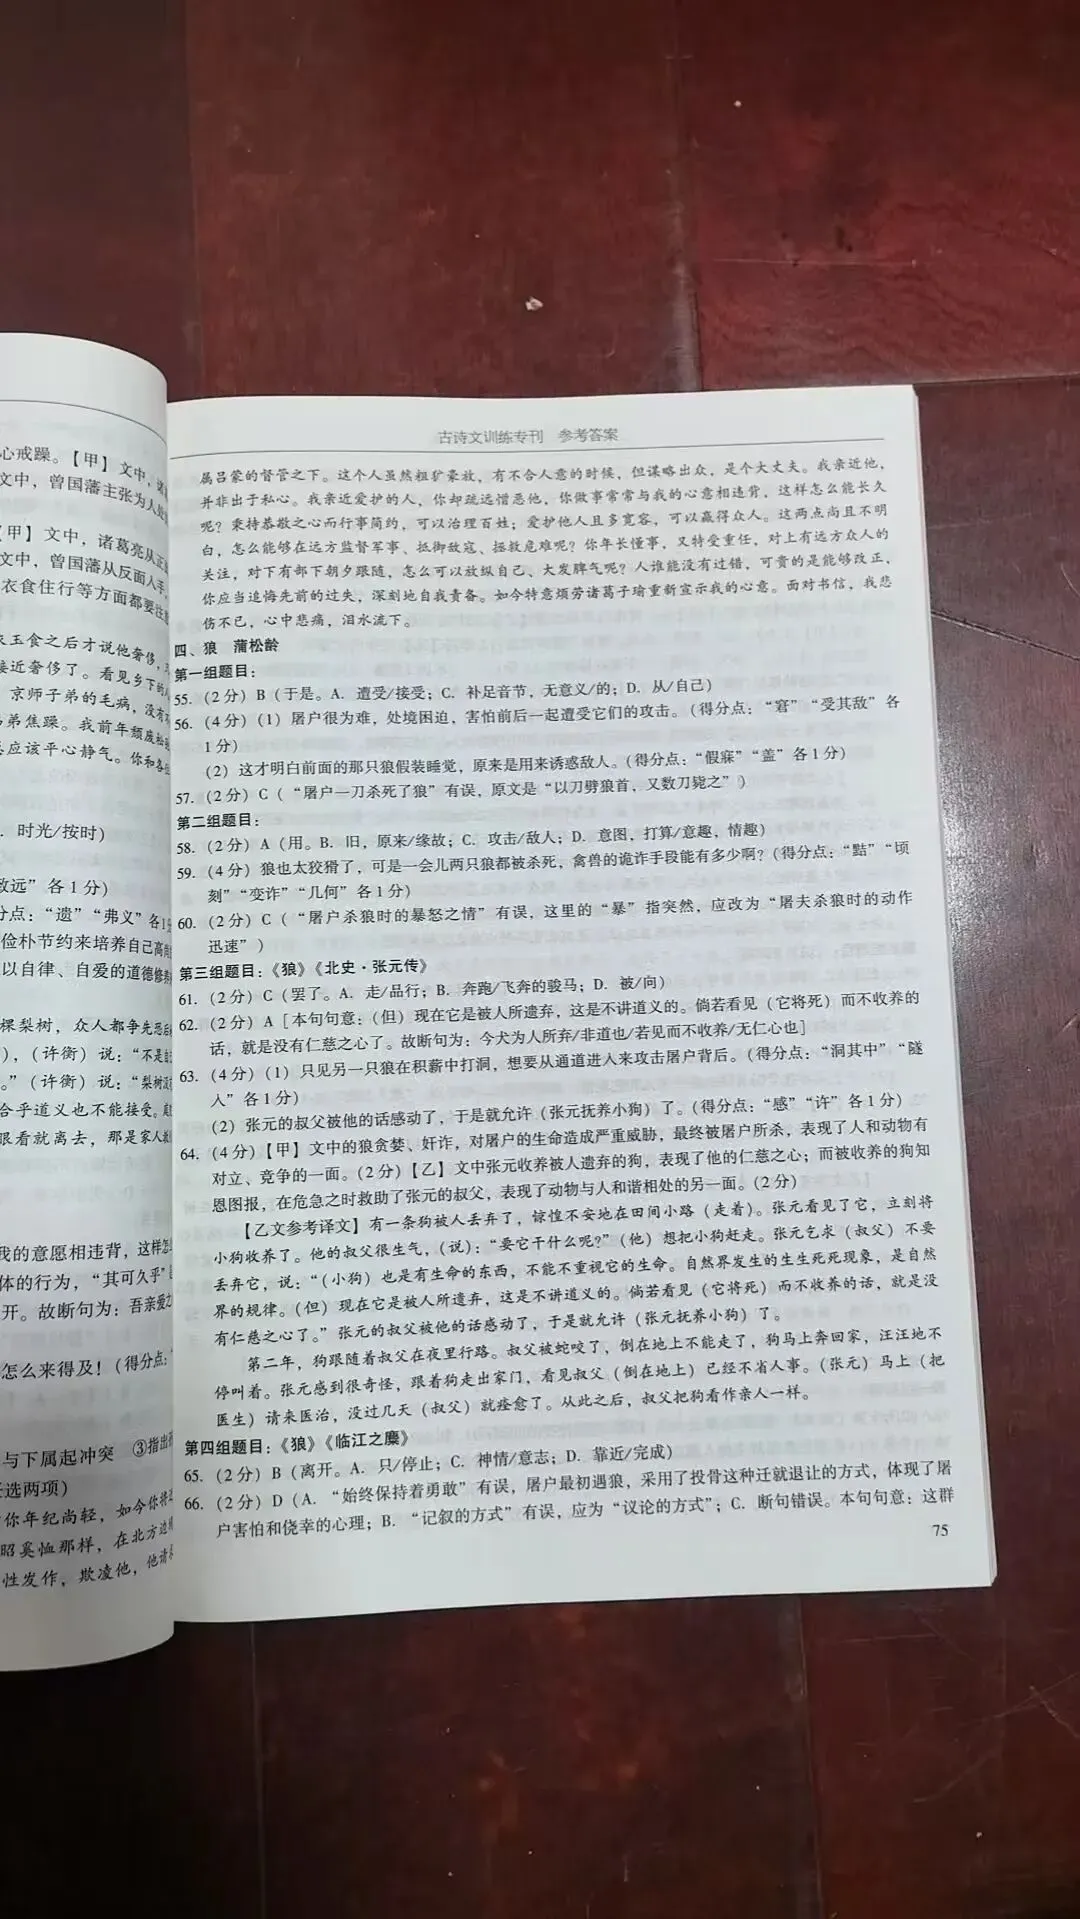 心戒躁。【甲】文中，
文中，曾国藩主张为人
【甲】文中，诸葛亮从正
文中，曾国藩从反面入手，
衣食住行等方面都要注
玉食之后才说他奢侈，
接近奢侈了。看见乡下的
京师子弟的毛病，没有
弟焦躁。我前年颓废
应该平心静气。你和各
．时光/按时)
致远”各1分)
分点：“遗”“弗义”各1分
俭朴节约来培养自己高
以自律、自爱的道德修养
棵梨树，众人都争先恐后
)，(许衡)说：“不是自
。”(许衡)说：“梨树没
合乎道义也不能接受。
眼看就离去，那是家人
我的意愿相违背，这样怎
体的行为，“其可久乎”
开。故断句为：吾亲爱之
怎么来得及！(得分点：
与下属起冲突　③指出
任选两项)
你年纪尚轻，如今你将
昭奚恤那样，在北方边
性发作，欺凌他，他请
古诗文训练专刊　参考答案
属吕蒙的督管之下。这个人虽然粗犷豪放，有不合人意的时候，但谋略出众，是个大丈夫。我亲近他，
并非出于私心。我亲近爱护的人，你却疏远憎恶他，你做事常常与我的心意相违背，这样怎么能长久
呢？秉持恭敬之心而行事简约，可以治理百姓；爱护他人且多宽容，可以赢得众人。这两点尚且不明
白，怎么能够在远方监督军事、抵御敌寇、拯救危难呢？你年长懂事，又特受重任，对上有远方众人的
关注，对下有部下朝夕跟随，怎么可以放纵自己、大发脾气呢？人谁能没有过错，可贵的是能够改正，
你应当追悔先前的过失，深刻地自我责备。如今特意烦劳诸葛子瑜重新宣示我的心意。面对书信，我悲
伤不已，心中悲痛，泪水流下。
四、狼　蒲松龄
第一组题目：
55. (2分) B (于是。A. 遭受/接受；C. 补足音节，无意义/的；D. 从/自己)
56. (4分) (1) 屠户很为难，处境困迫，害怕前后一起遭受它们的攻击。(得分点：“窘”“受其敌”各
1分)
(2) 这才明白前面的那只狼假装睡觉，原来是用来诱惑敌人。(得分点：“假寐”“盖”各1分)
57. (2分) C (“屠户一刀杀死了狼”有误，原文是“以刀劈狼首，又数刀毙之”)
第二组题目：
58. (2分) A (用。B. 旧，原来/缘故；C. 攻击/敌人；D. 意图，打算/意趣，情趣)
59. (4分) 狼也太狡猾了，可是一会儿两只狼都被杀死，禽兽的诡诈手段能有多少啊？(得分点：“黠”“顷
刻”“变诈”“几何”各1分)
60. (2分) C (“屠户杀狼时的暴怒之情”有误，这里的“暴”指突然，应改为“屠夫杀狼时的动作
迅速”)
第三组题目：《狼》《北史·张元传》
61. (2分) C (罢了。A. 走/品行；B. 奔跑/飞奔的骏马；D. 被/向)
62. (2分) A [本句句意：(但)现在它是被人所遗弃，这是不讲道义的。倘若看见(它将死)而不收养的
话，就是没有仁慈之心了。故断句为：今犬为人所弃/非道也/若见而不收养/无仁心也]
63. (4分) (1) 只见另一只狼在积薪中打洞，想要从通道进入来攻击屠户背后。(得分点：“洞其中”“隧
入”各1分)
(2) 张元的叔父被他的话感动了，于是就允许(张元抚养小狗)了。(得分点：“感”“许”各1分)
64. (4分)【甲】文中的狼贪婪、奸诈，对屠户的生命造成严重威胁，最终被屠户所杀，表现了人和动物有
对立、竞争的一面。(2分)【乙】文中张元收养被人遗弃的狗，表现了他的仁慈之心；而被收养的狗知
恩图报，在危急之时救助了张元的叔父，表现了动物与人和谐相处的另一面。(2分)
【乙文参考译文】有一条狗被人丢弃了，惊惶不安地在田间小路(走着)。张元看见了它，立刻将
小狗收养了。他的叔父很生气，(说)：“要它干什么呢？”(他)想把小狗赶走。张元乞求(叔父)不要
丢弃它，说：“(小狗)也是有生命的东西，不能不重视它的生命。自然界发生的生生死死现象，是自然
界的规律。(但)现在它是被人所遗弃，这是不讲道义的。倘若看见(它将死)而不收养的话，就是没
有仁慈之心了。”张元的叔父被他的话感动了，于是就允许(张元抚养小狗)了。
第二年，狗跟随着叔父在夜里行路。叔父被蛇咬了，倒在地上不能走了，狗马上奔回家，汪汪地不
停叫着。张元感到很奇怪，跟着狗走出家门，看见叔父(倒在地上)已经不省人事。(张元)马上(把
医生)请来医治，没过几天(叔父)就痊愈了。从此之后，叔父把狗看作亲人一样。
第四组题目：《狼》《临江之麋》
65. (2分) B (离开。A. 只/停止；C. 神情/意志；D. 靠近/完成)
66. (2分) D (A. “始终保持着勇敢”有误，屠户最初遇狼，采用了投骨这种迁就退让的方式，体现了屠
户害怕和侥幸的心理；B. “记叙的方式”有误，应为“议论的方式”；C. 断句错误。本句句意：这群
75